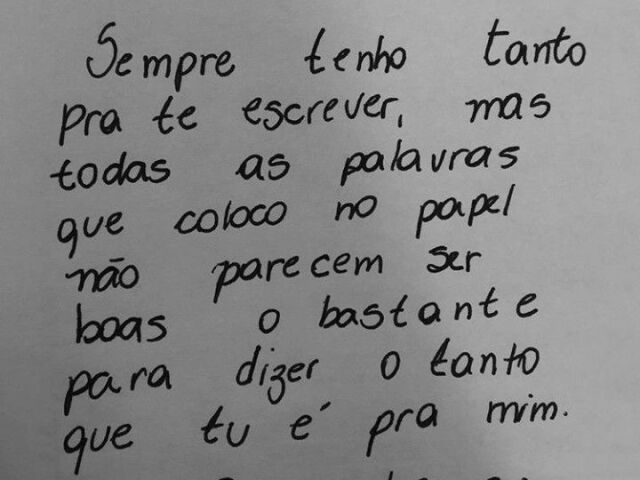 Sempre tenho tanto
pra te escrever, mas
todas as palavras
que coloco no papel
não parecem ser
boas o bastante
para dizer o tanto
que tu é pra mim.